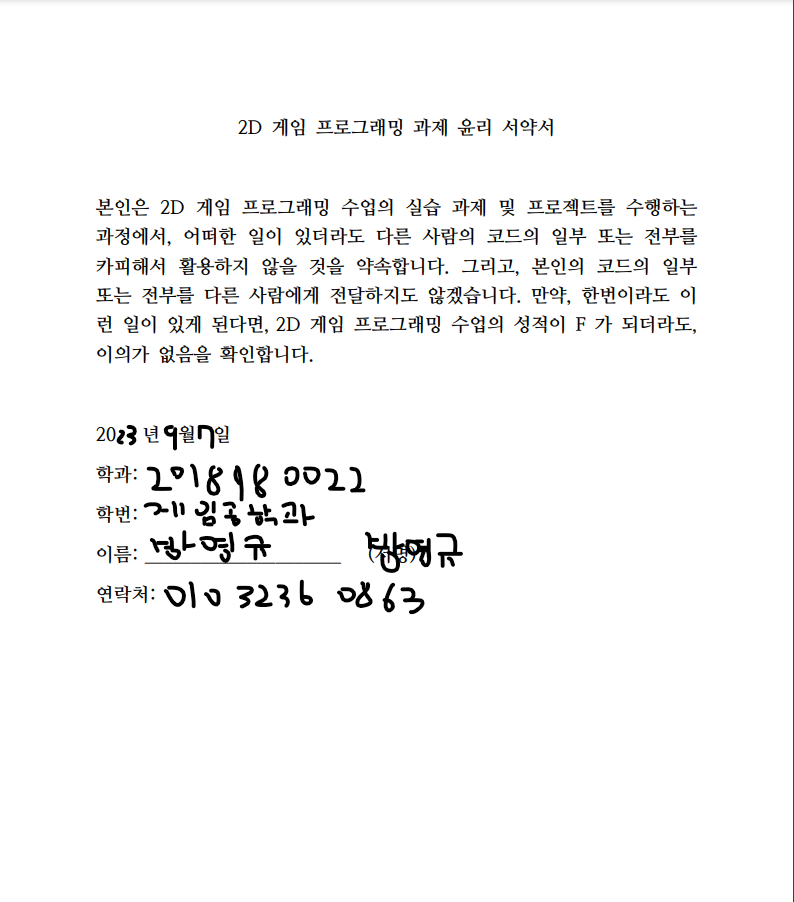 2D 게임 프로그래밍 과제 윤리 서약서
본인은 2D 게임 프로그래밍 수업의 실습 과제 및 프로젝트를 수행하는
과정에서, 어떠한 일이 있더라도 다른 사람의 코드의 일부 또는 전부를
카피해서 활용하지 않을 것을 약속합니다. 그리고, 본인의 코드의 일부
또는 전부를 다른 사람에게 전달하지도 않겠습니다. 만약, 한번이라도 이
런 일이 있게 된다면, 2D 게임 프로그래밍 수업의 성적이 F 가 되더라도,
이의가 없음을 확인합니다.
2023년 9월 7일
학과: 2018180022
학번: 게임공학과
이름: 방영규 (서명) 방영규
연락처: 010 3236 0863